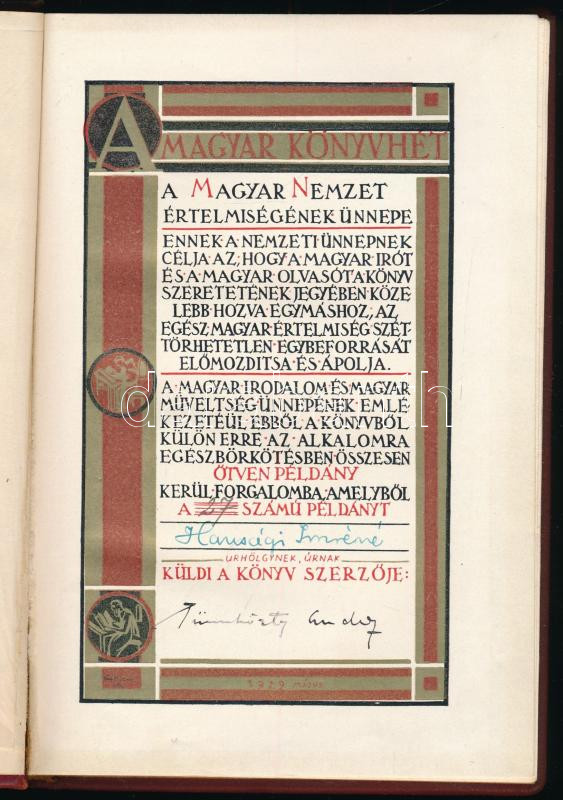 A MAGYAR KÖNYVHÉT
A MAGYAR NEMZET
ÉRTELMISÉGÉNEK ÜNNEPE
ENNEK·A·NEMZETI ÜNNEPNEK
CÉLJA AZ; HOGY A MAGYAR IRÓT
ÉS·A·MAGYAR OLVASÓT A KÖNYV
SZERETETÉNEK JEGYÉBEN KÖZE
LEBB HOZVA EGYMÁSHOZ; AZ
EGÉSZ MAGYAR ÉRTELMISÉG SZÉT-
TÖRHETETLEN EGYBEFORRÁSÁT
ELŐMOZDITSA·ÉS·ÁPOLJA.
A·MAGYAR IRODALOM ÉS MAGYAR
MŰVELTSÉG·ÜNNEPÉNEK EMLÉ
KEZETÉÜL EBBŐL A KÖNYVBŐL
KÜLÖN ERRE AZ ALKALOMRA
EGÉSZBŐRKÖTÉSBEN ÖSSZESEN
ÖTVEN PÉLDÁNY
KERÜL FORGALOMBA AMELYBŐL
A 27 SZÁMÚ PÉLDÁNYT
Hansági Imréné
URHÖLGYNEK, ÚRNAK
KÜLDI A KÖNYV SZERZŐJE:
1929 MÁJUS
darabanth.com